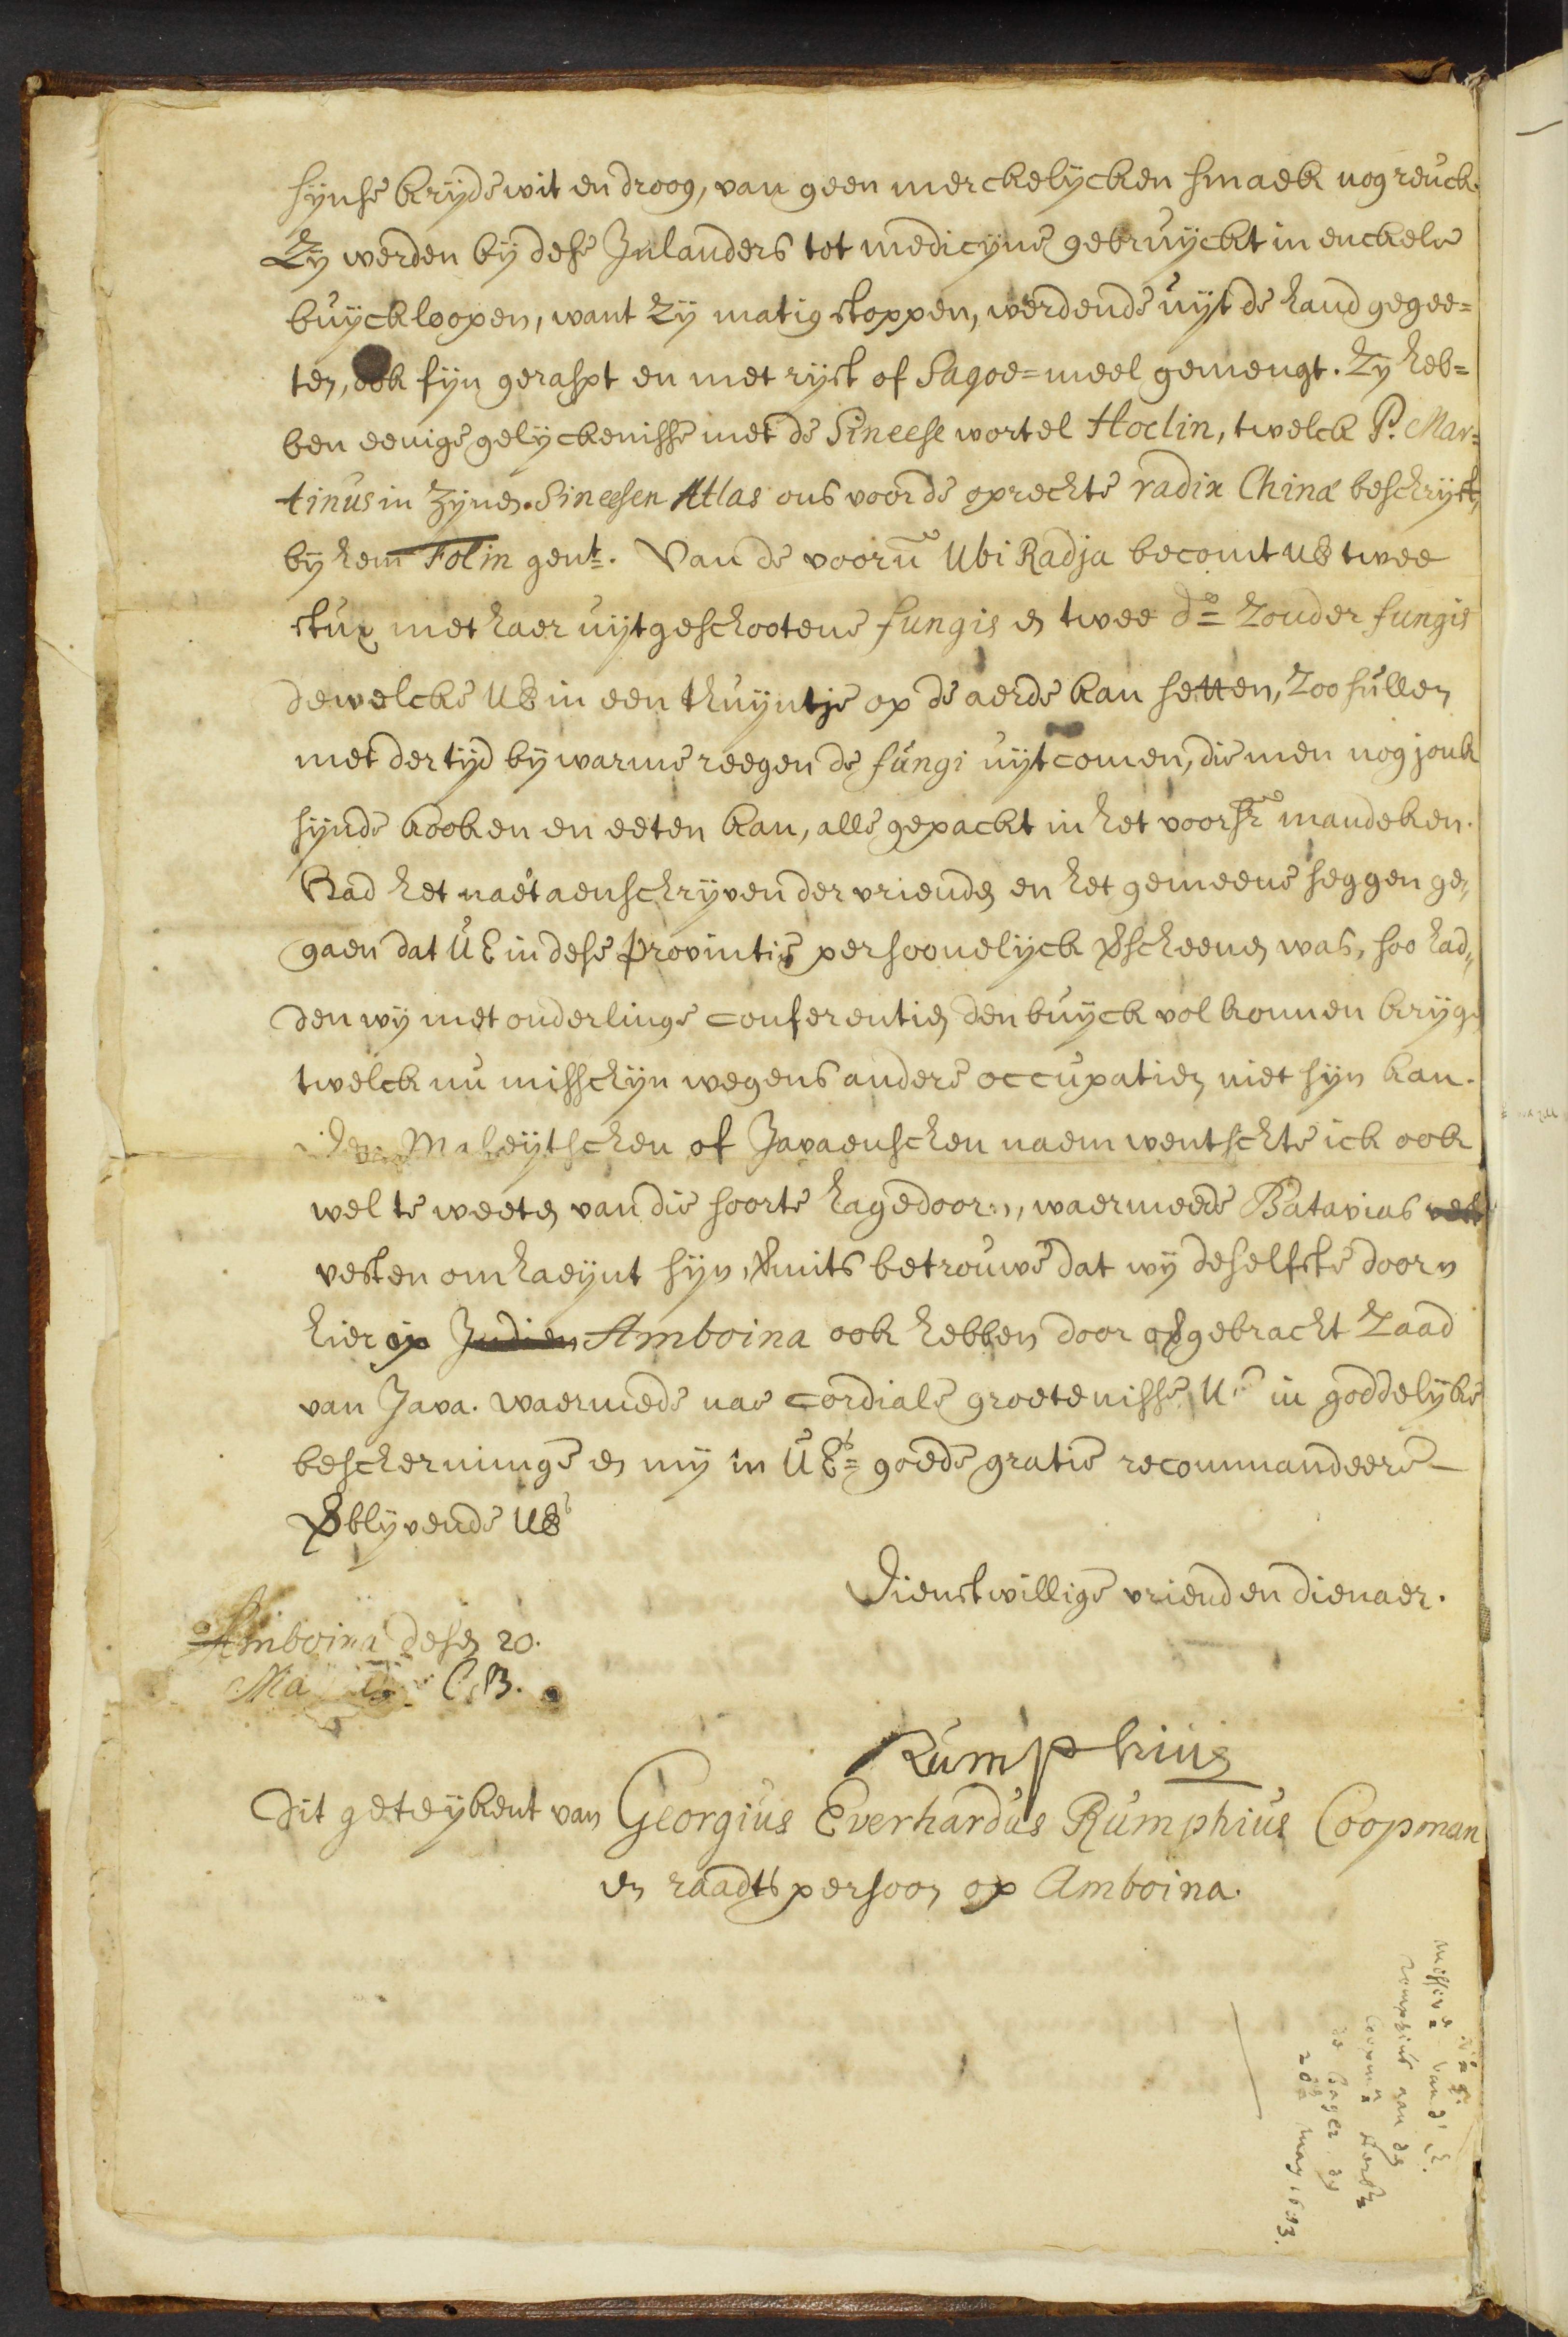 synse krijdewit en droog, van geen merckelycken smaek nog reuck.
Zy werden by dese Inlanders tot medicyne gebruyckt in enckele
buyckloopen, want zy matig stoppen, werdende uyt de hand gegee=
ten, ook fyn geraspt en met ryst of Sagoe=meel gemengt. Zy heb=
ben eenige gelyckenisse met de Sineese wortel Hoelin, twelck P. Mar=
tinus in Zynen Sineesen Atlas ons voor de oprechte radix Chinæ beschryft,
by hem Folin gent. Van de voorn Ubi Radja becomt UE twee
stux met haer uytgeschootene fungis en twee do zonder fungis
dewelcke UE in een thuyntje op de aerde kan setten, zoo sullen
met der tyd by warme reegen de fungi uytcomen, die men nog jonk
synde kooken en eeten kan, alle gepackt in het voorsr mandeken.
Had het naet aenschryven der vrienden en het gemeene seggen ge„
gaen dat UE in dese provintie persoonelyck verscheenen was, soo had„
den wy met onderlinge conferentien den buyck vol konnen kryge
twelck nu misschyn wegens andere occupatien niet syn kan.
Den Maleytschen of Javaenschen naem wentschte ick ook
wel te weeten van die soorte hagedoorn, waermeede Batavias vest
vesten omhaeynt syn, vermits betrouwe dat wy deselfste doorn
hier op Indien Amboina ook hebben door opgebracht zaad
van Java. waermede nae cordiale groetenisse, UE in goddelyke
bescherminge en my in UEs goede gratie recommandeere
verblyvende UEs
Dienstwillige vriend en dienaer.
Amboina desen 20.
Ma
Rumphius
Dit geteykent van Georgius Everhardus Rumphius Coopman
en raadtspersoon op Amboina.
missive van d' E.
rompius aan den
Coopmn
de Bager dd
20e May 1693.